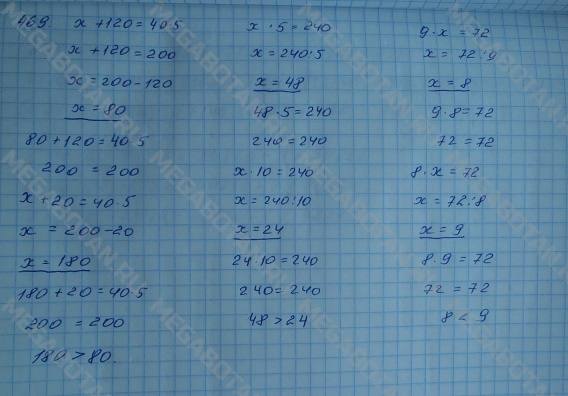 469 x + 120 = 40·5
x + 120 = 200
x = 200 - 120
x = 80
80 + 120 = 40·5
200 = 200
x + 20 = 40·5
x = 200 - 20
x = 180
180 + 20 = 40·5
200 = 200
180 > 80.
x · 5 = 240
x = 240:5
x = 48
48·5 = 240
240 = 240
x·10 = 240
x = 240:10
x = 24
24·10 = 240
240 = 240
48 > 24
9·x = 72
x = 72:9
x = 8
9·8 = 72
72 = 72
8·x = 72
x = 72:8
x = 9
8·9 = 72
72 = 72
8 < 9
MEGABOTAN.RU